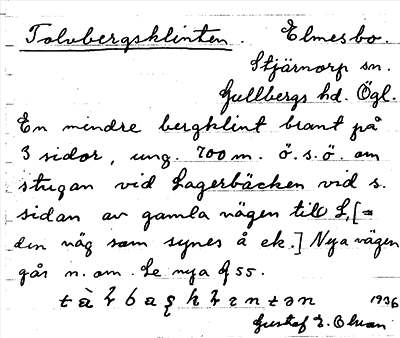 Tolvbergsklinten. Elmesbo.
Stjärnorp sn.
Gullbergs hd. Ögl.
En mindre bergklint brant på
3 sidor, ung. 700 m. ö.s.ö. om
stugan vid Lagerbäcken vid s.
sidan av gamla vägen till L, [=
den väg som synes å ek.] Nya vägen
går n. om. Se nya f 55.
1936
Gustaf E. Olson